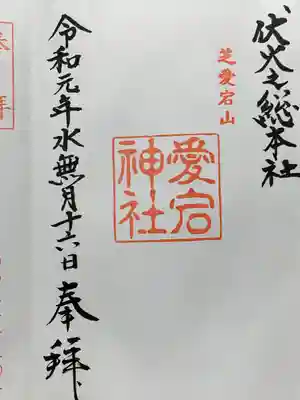 伏火之総本社
芝愛宕山
愛宕
神社
令和元年水無月十六日奉拝